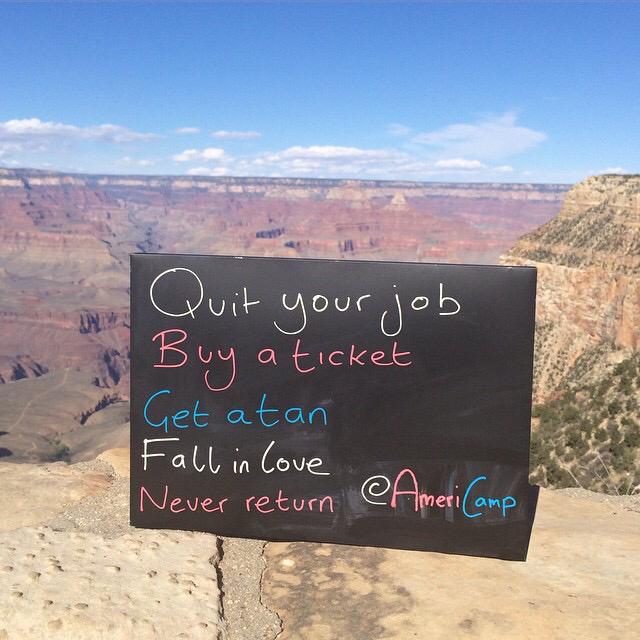 Quit your job
Buy a ticket
Get a tan
Fall in love
Never return ©AmeriCamp